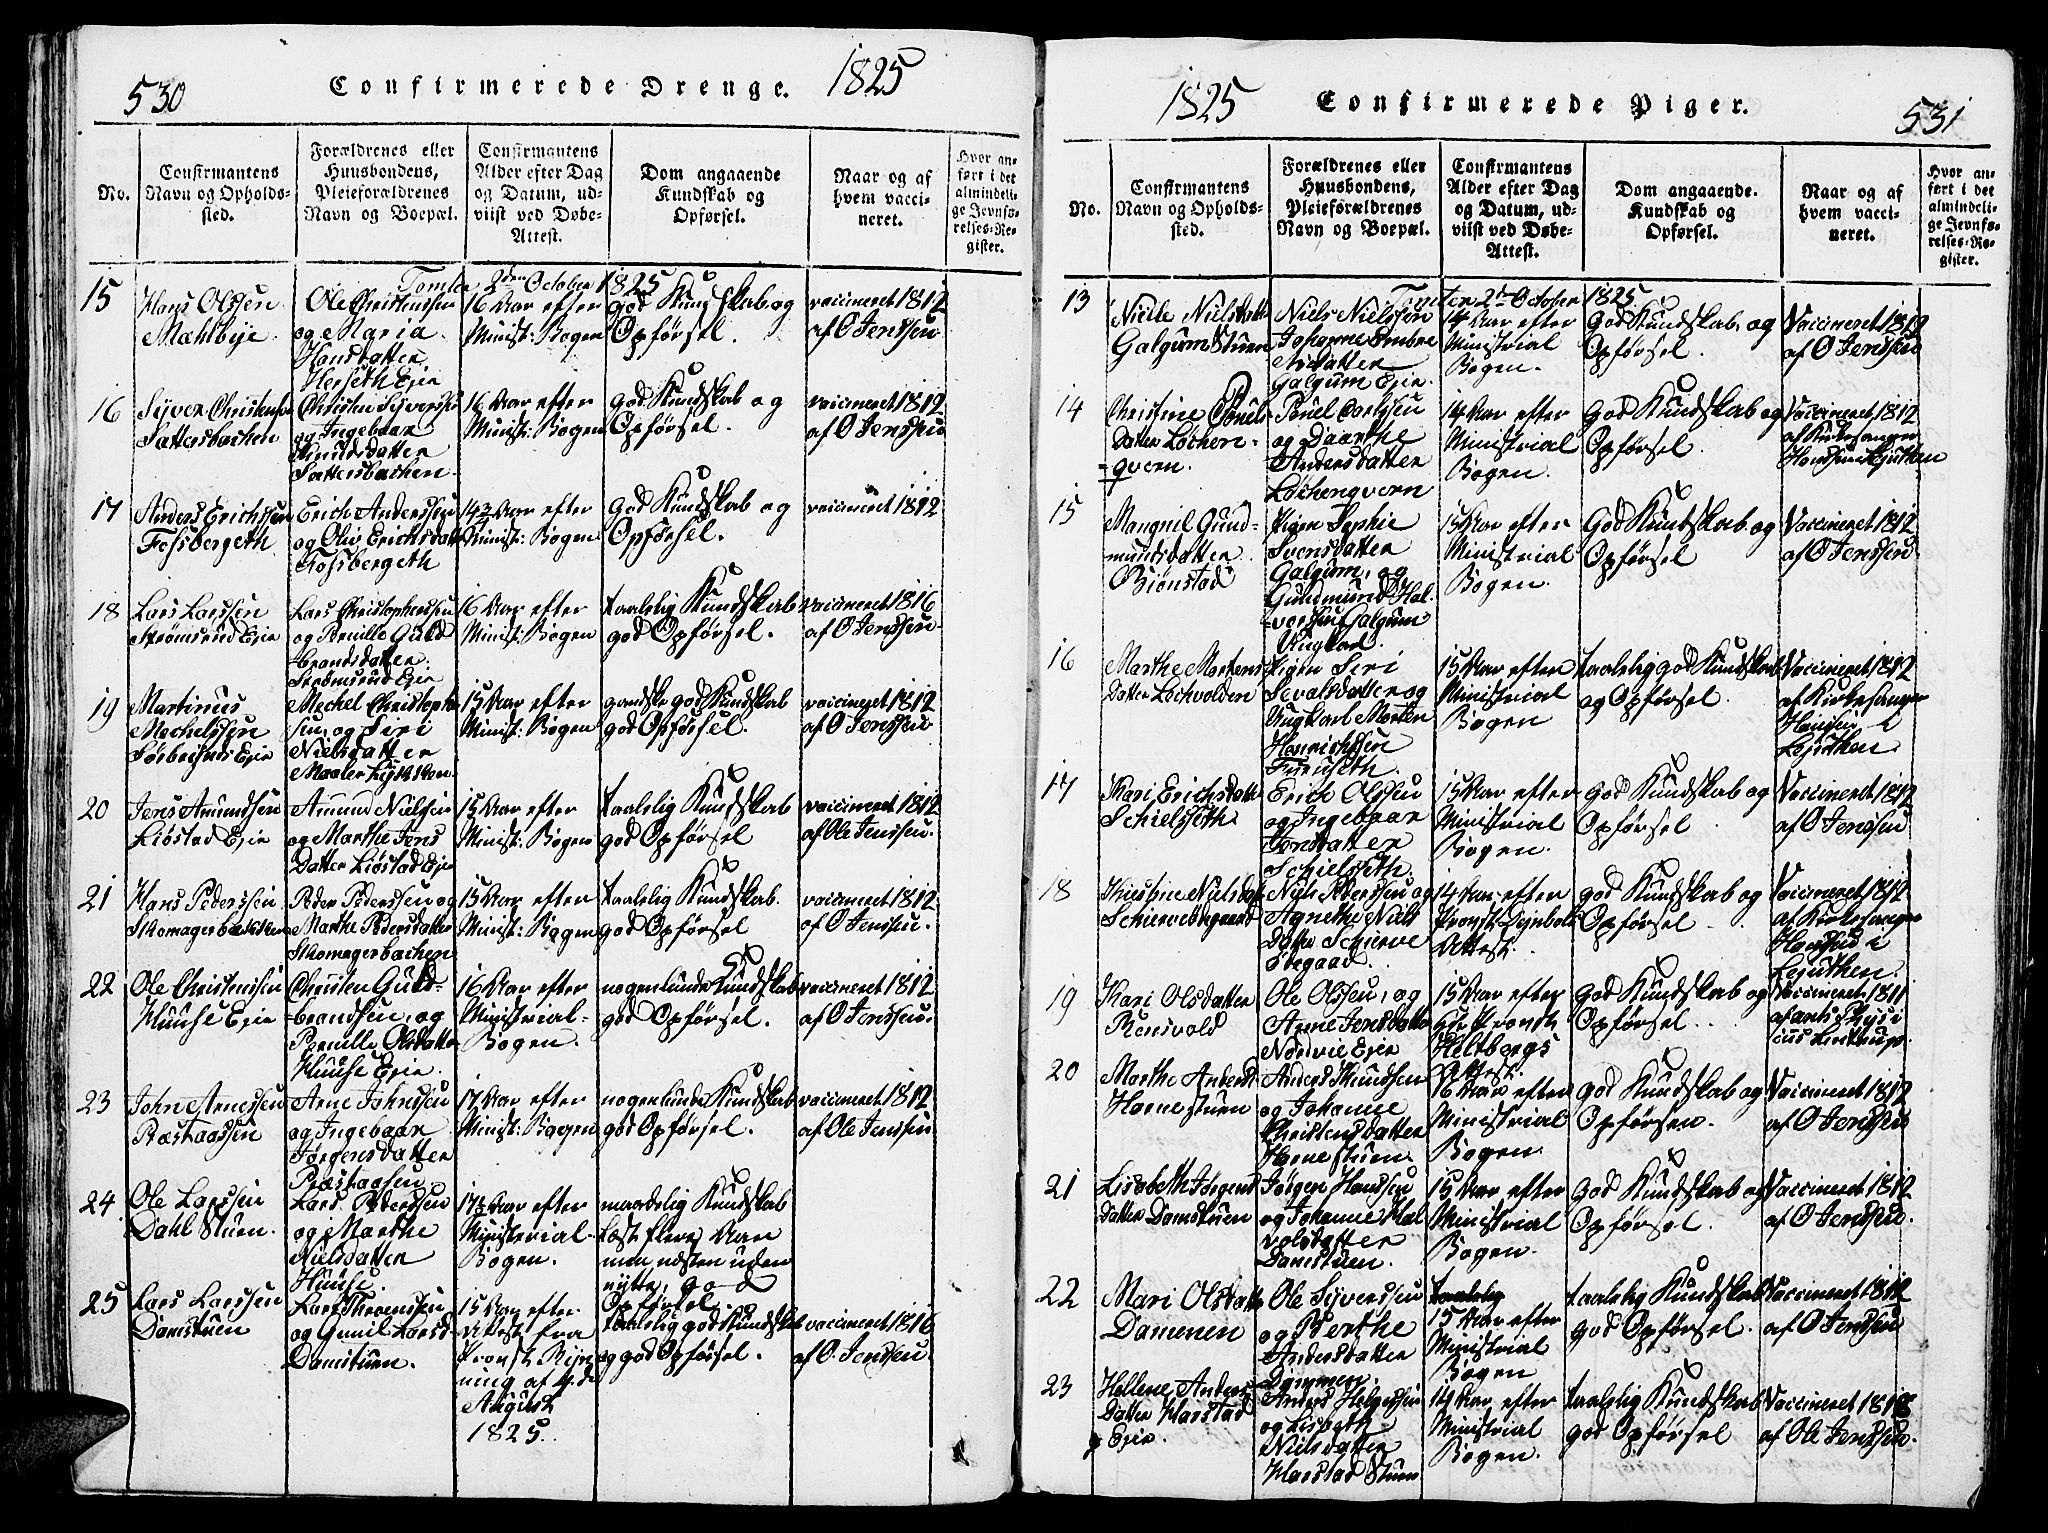 530
Confirmerede Drenge.
1825
No.
Confirmantens
Navn og Opholds-
sted.
Forældrenes eller
Huusbondens,
Pleieforældrenes
Navn og Boepæl.
Confirmantens
Alder efter Dag
og Datum, ud-
viist ved Døbe-
Attest.
Dom angaaende
Kundskab og
Opførsel.
Naar og af
hvem vacci-
neret.
Hvor an-
ført i det
almindeli-
ge Jevnfø-
relses-Re-
gister.
2den October 1825
15
Hans Olssen
Mæhlbye.
Ole Christenssen
og Maria
Hansdatter
Herseth Eje
16 Aar efter
Minist: Bogen
god Kundskab og
Opførsel.
vaccineret 1812
af O Jenssen
16
Syver Christensen
Sattersbachen
Christen Syverss
og Ingebaar
Knudsdatter
Sattersbachen.
16 Aar efter
Minist: Bogen
god Kundskab og
Opførsel.
vaccineret 1812
af O Jenssen
17
Anders Erichssen
Fossbergeth
Erich Anderssen
og Oliv Erichsdatt
Fossbergeth
Aar efter
Minist: Bogen
god Kundskab og
Opførsel.
vaccineret 1812
18
Lars Larssen
Strømsrud Eje
Lars Christopherssen
og Pernille Guld
brandsdatter
Strømsrud Eje
16 Aar efter
Minist: Bogen
taalelig Kundskab
god Opførsel.
vaccineret 1816
af O Jenssen
19
Martinus
Mechelssen
Eje
Mechel Christoph
sen, og Siri
Nielsdatter
15 Aar efter
Minist: Bogen
ganske god Kundskab
god Opførsel.
vaccineret 1812
af O Jenssen
20
Jens Amundsen
Liøstad Eje
Amund Nielsen
og Marthe Jens
Datter Liøstad Eje
15 Aar efter
Minist: Bogen
taalelig Kundskab
god Opførsel
vaccineret 1812
af Ole Jenssen.
21
Hans Pederssen
Skomagerbakken
Peder Pederssen og
Marthe Pedersdatter
Skomagerbachen
15 Aar efter
Minist: Bogen
taalelig Kundskab.
god Opførsel
vaccineret 1812
af O Jenssen.
22
Ole Christenssen
Huuse Eje
Christen Guld-
brandsen, og
Pernille Olsdatter
Huuse Eje.
16 Aar efter
Ministrial-
Bogen.
nogenlunde Kundskab
god Opførsel.
vaccineret 1812
af O Jenssen.
23
John Arnessen
Præstaassen
Arne Johnssen
og Ingebaar
Jørgensdatter
Præstaasen
17 Aar efter
Minist: Bogen
nogenlunde Kundskab
god Opførsel.
vaccineret 1812
af Ole Jenssen
24
Ole Larssen
Dahl Stuen.
Lars Pederssen
og Marthe
Nielsdatter
Huuse.
17½ Aar efter
Ministerial-
Bogen.
maadelig Kundskab
Læst flere Aar
men næsten uden
nytte, god
Opførsel
25
Lars Larssen
Damstuen
Lars Thronssen
og Gunil Larsd
Damstuen.
15 Aar efter
Attest fra
Provst Ryn
ning af 4 de
August
1825.
taalelig god Kundskab
og god Opførsel.
vaccineret 1816
af O. Jenssen.
1825
Confirmerede Piger.
531
No.
Confirmantens
Navn og Opholds-
sted.
Forældrenes eller
Huusbondens,
Pleieforældrenes
Navn og Boepæl.
Confirmantens
Alder efter Dag
og Datum, ud-
viist ved Døbe-
Attest.
Dom angaaende
Kundskab og
Opførsel.
Naar og af
hvem vacci-
neret.
Hvor an-
ført i det
almindeli-
ge Jevnfø-
relses-Re-
gister.
Tomter 2den October 1825
13
Nielle Nielsdatt
Galgum Stuen
Niels Nielssen
Johanne Embre
Galgum Eje.
14 Aar efter
Ministrial
Bogen.
God Kundskab, og
Opførsel.
Vaccineret 1812
af O Jenssen
14
Christine Pouels
Datter Løchen-
qvern.
Pouel Carlssen
og Daarthe
Andersdatter
Løchenqvern
14 Aar efter
Ministrial
Bogen.
God Kundskab og
Opførsel.
Vaccineret 1812
af Kirkesanger
Hanssen i Løjthen
15
Mangnil Gund-
mundsdatter
Biønstad
Pigen Sophie
Svensdatter
Galgum, og
Gundmund Hal-
vorssen Galgum
Ungkarl.
15 Aar efter
Ministrial
Bogen.
God Kundskab og
Opførsel
Vaccineret 1812
af O Jenssen.
16
Marthe Mortens
Datter Lochvolden
Pigen Siri
Sevalsdatter og
Ungkarl Morten
Henrichssen
Furuseth.
15 Aar efter
Ministrial
Bogen
taalelig god Kundskab
og Opførsel.
Vaccineret 1812
af Kirkesanger
Hanssen i
Løjthen.
17
Kari Erichsdatt
Schielseth.
Erich Olssen
og Ingebaar
Jonsdatter
Schielseth.
15 Aar efter
Ministrial
Bogen.
God Kundskab og
Opførsel
Vaccineret 1812
af O Jenssen
18
Kirstine Nielsdat
Niels Pederssen og
Agnethe Niels
Datter Schierve
Ødegaard.
14 Aar, efter
Provst
Attest.
god Kundskab og
Opførsel.
Vaccineret 1812
af Kirkesanger
Hanssen i
Løjthen.
19
Kari Olsdatter
Rensvold
Ole Olssen, og
Anne Jensdatter
Nordvie Eje
15 Aar efter
Hr Provst
Heltbergs
Attest.
God Kundskab og
Opførsel.
Vaccineret 1811
af amts Physi
cus Lintrup.
20
Marthe Andersd
Hornestuen
Anders Knudsen
og Johanne
Christensdatter
Hornestuen.
16 Aar efter
Ministrial
Bogen.
God Kundskab og
Opførsen.
Vaccineret 1812
af O Jenssen.
21
Lisabeth Jørgens
Datter Damstuen
Jørgen Hanssen
og Johanne Hal
volsdatter
Damstuen.
15 Aar efter
Ministrial
Bogen.
God Kundskab og
Opførsel.
Vaccineret 1812
af O Jenssen.
22
Mari Olsdatter
Dammen
Ole Syverssen
og Berthe
Andersdatter
Dammen.
taalelig
15 Aar efter
Ministrial
Bogen
taalelig Kundskab
god Opførsel.
Vaccineret 1812
af O Jenssen
23
Hellene Anders
Datter Harstad
Eje.
Anders Helgessen
og Lisbeth
Nielsdatter
Harstad Stuen
14 Aar, efter
Ministrial
Bogen.
taalelig Kundskab
god Opførsel
Vaccineret 1818
af Ole Jenssen.